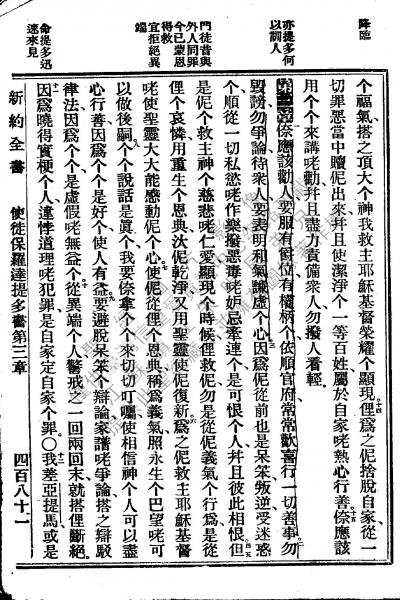 降臨
亦提多何
以訓人
門徒昔與
外人同罪
今已蒙恩
得救
宜拒絕異
端
命提多迅
速來見
个福氣搭之頂大个神我救主耶穌基督榮耀个顯現俚爲之伲捨脫自家從一
切罪惡當中贖伲出來幷且使潔淨个一等百姓屬於自家咾熱心行善倷應該
用个个來講咾勸幷且盡力責備衆人勿撥人看輕
第三章倷應該勸人要服有爵位有權柄个依順官府常常歡喜行一切善事勿
毀謗勿爭論待衆人要表明和氣謙虛个心因爲伲從前也是呆笨叛逆受迷惑
个順從一切私慾咾作樂撥惡毒咾妬忌牽連个是可恨个人幷且彼此相恨但
是伲个救主神个慈悲咾仁愛顯現个時候俚救伲勿是從伲義氣个行爲是從
俚个哀憐用重生个恩典汏伲乾淨又用聖靈使伲復新爲之伲救主耶穌基督
咾使聖靈大大能感動伲个心使伲從俚个恩典稱爲義氣照永生个巴望咾可
以做後嗣个个說話是眞个我要倷拿个个來切切叮囑使相信神个人可以盡
心行善因爲个个是好个使人有益要避脫呆笨个辯論家譜咾爭論搭之辯駁
律法因爲个个是虛假咾無益个從異端个人警戒之一回兩回末就搭俚斷絕
因爲曉得實梗个人違悖道理咾犯罪是自家定自家个罪○我差亞提馬或是
新約全書
使徒保羅達提多書第三章
四百八十一